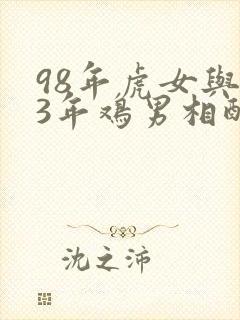 98年虎女與
3年鸡男相配
沈之沛